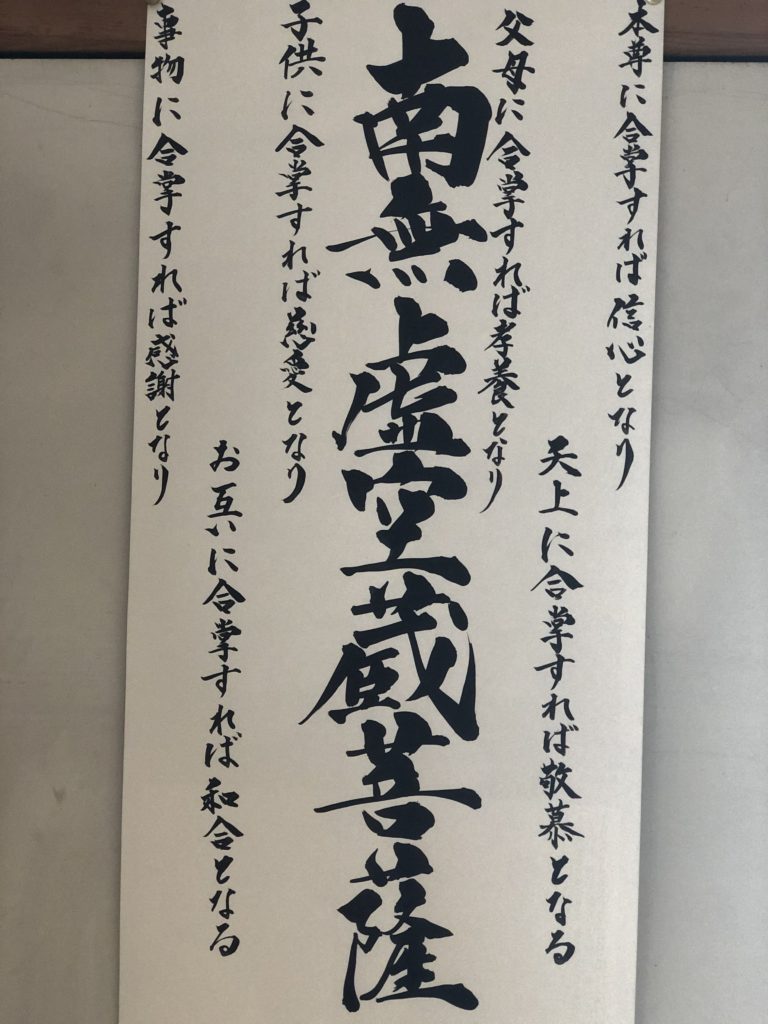 本尊に合掌すれば信心となり
天上に合掌すれば敬慕となる
父母に合掌すれば孝養となり
南無虚空蔵菩薩
子供に合掌すれば慈愛となり
お互いに合掌すれば和合となる
事物に合掌すれば感謝となり